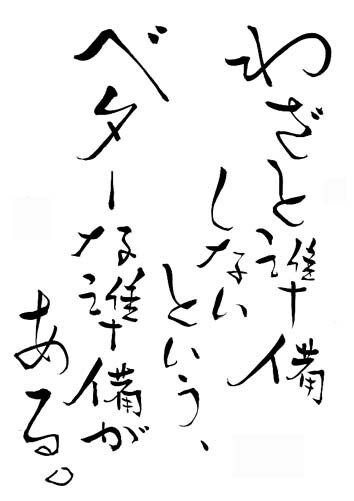 わざと準備
しない
という、
ベターな準備が
ある。